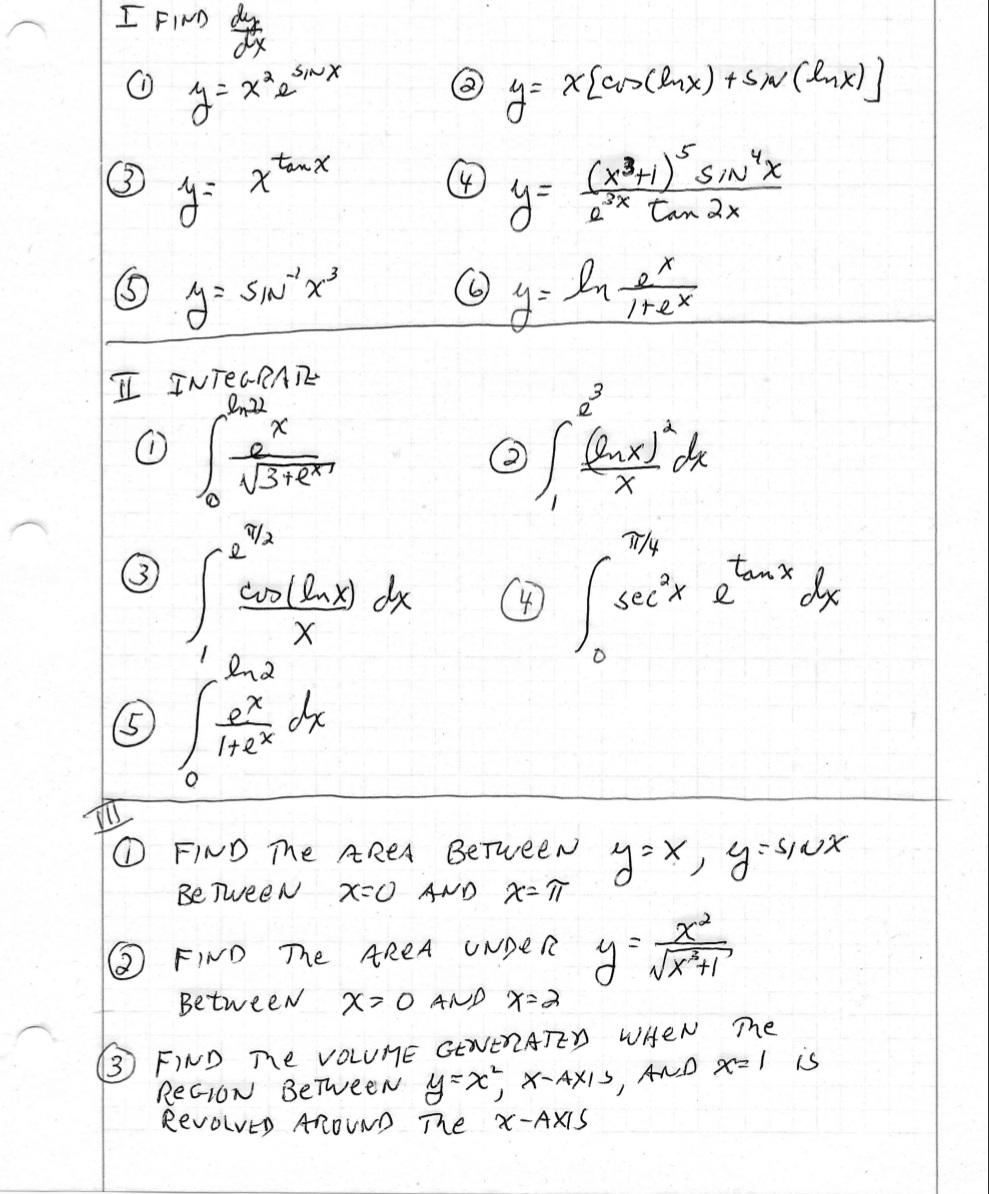 I FIND dy/dx
① y = x² e^(SIN X)
② y = x[cos(lnx) + SIN(lnx)]
③ y = x^(tan x)
④ y = (x³+1)⁵ SIN⁴x / e^(3x) tan 2x
⑤ y = SIN⁻¹ x³
⑥ y = ln e^x / 1+e^x
II INTEGRATE
① ∫₀^(ln22) e^x / √(3+e^x)
② ∫₁^(e³) (lnx)² / x dx
③ ∫₁^(e^(π/2)) cos(lnx) / x dx
④ ∫₀^(π/4) sec²x e^(tan x) dx
⑤ ∫₀^(ln2) e^x / 1+e^x dx
III
① FIND THE AREA BETWEEN y=x, y=SINX
BETWEEN x=0 AND x=π
② FIND THE AREA UNDER y = x² / √(x³+1)
BETWEEN x=0 AND x=2
③ FIND THE VOLUME GENERATED WHEN THE
REGION BETWEEN y=x², X-AXIS, AND x=1 IS
REVOLVED AROUND THE X-AXIS